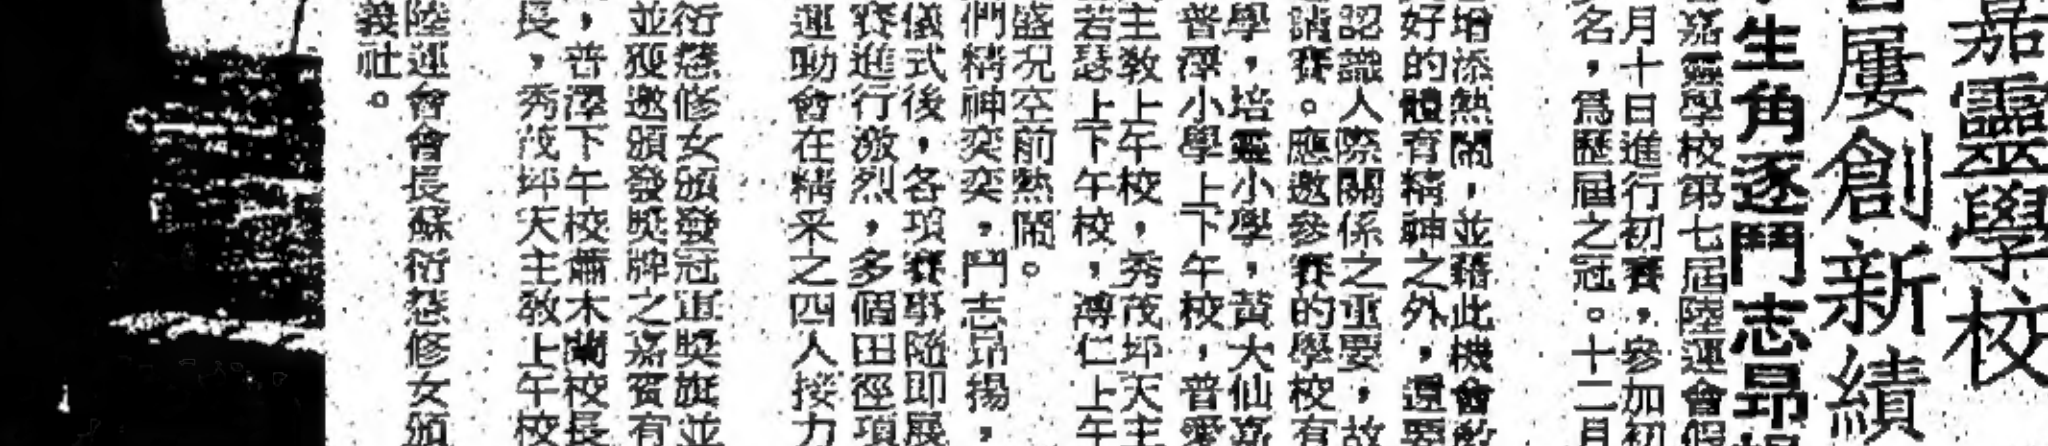 嘉靈學校
屢創新績
生角逐鬥志昂
嘉靈學校第七屆陸運會假
月十日進行初賽，參加初
名，爲歷屆之冠。十二月
增添熱鬧，並藉此機會
好的體育精神之外，還要
認識人際關係之重要，故
請賽。應邀參賽的學校有
學，培靈小學，黃大仙嘉
普澤小學上下午校，普愛
主教上午校，秀茂坪天主
若瑟上下午校，溥仁上午
盛况空前熱鬧。
們精神奕奕，鬥志昂揚，
儀式後，各項賽事隨即展
賽進行激烈，多個田徑項
運動會在精采之四人接力
衍慧修女頒發冠軍獎旗並
並獲邀頒發獎牌之嘉賓有
，普澤下午校蕭木蘭校長
長，秀茂坪天主教上午校
陸運會會長蘇衍慈修女頒
義社。